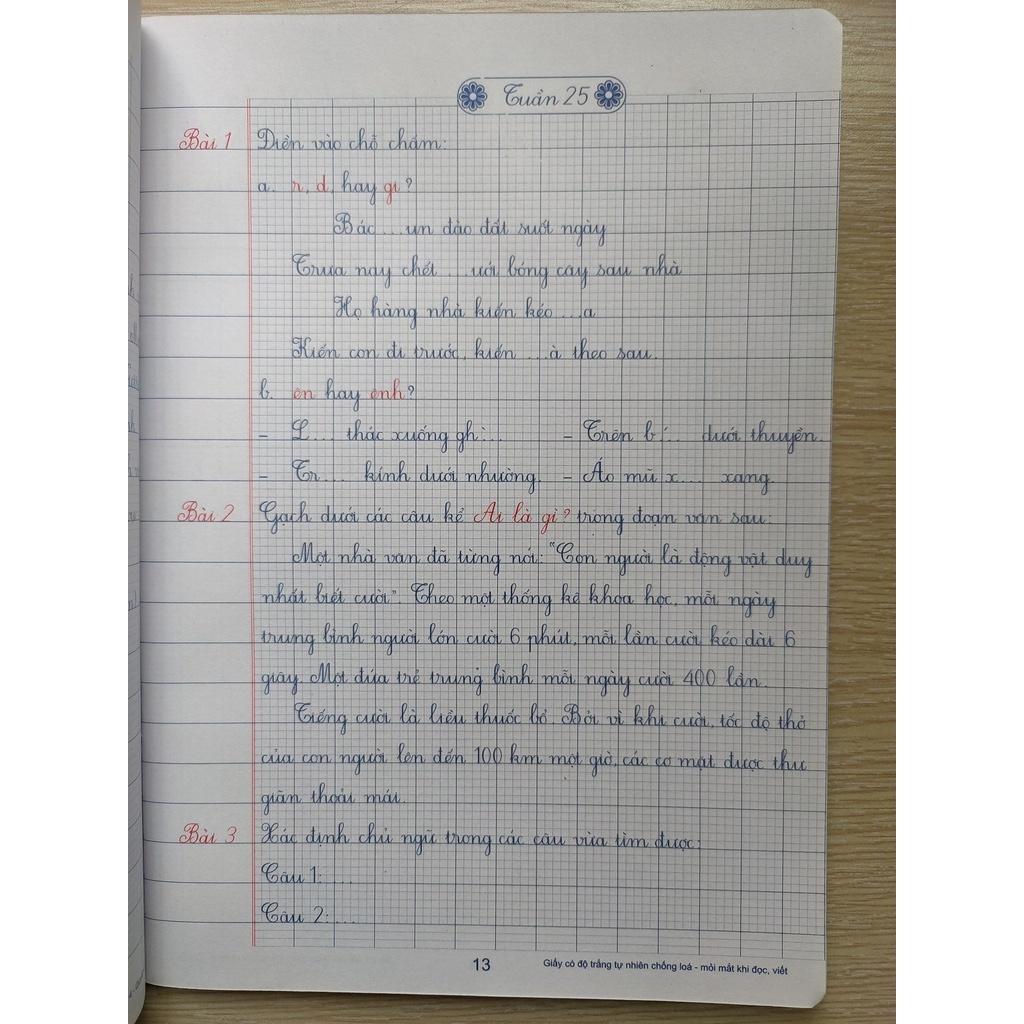 Tuần 25
Bài 1 Điền vào chỗ chấm:
a. r, d, hay gi?
Bác ...un đào đất suốt ngày
Trưa nay chết ...ưới bóng cây sau nhà
Họ hàng nhà kiến kéo ...a
Kiến con đi trước, kiến ...à theo sau.
b. ên hay ênh?
- L... thác xuống ghì... - Trên b´... dưới thuyền.
- Tr... kính dưới nhường. - Áo mũ x... xang.
Bài 2 Gạch dưới các câu kể Ai là gì? trong đoạn văn sau:
Một nhà văn đã từng nói: "Con người là động vật duy
nhất biết cười". Theo một thống kê khoa học, mỗi ngày
trung bình người lớn cười 6 phút, mỗi lần cười kéo dài 6
giây. Một đứa trẻ trung bình mỗi ngày cười 400 lần.
Tiếng cười là liều thuốc bổ. Bởi vì khi cười, tốc độ thở
của con người lên đến 100 km một giờ, các cơ mặt được thư
giãn thoải mái.
Bài 3 Xác định chủ ngữ trong các câu vừa tìm được:
Câu 1: ....
Câu 2: ...
13 Giấy có độ trắng tự nhiên chống loá - mỏi mắt khi đọc, viết